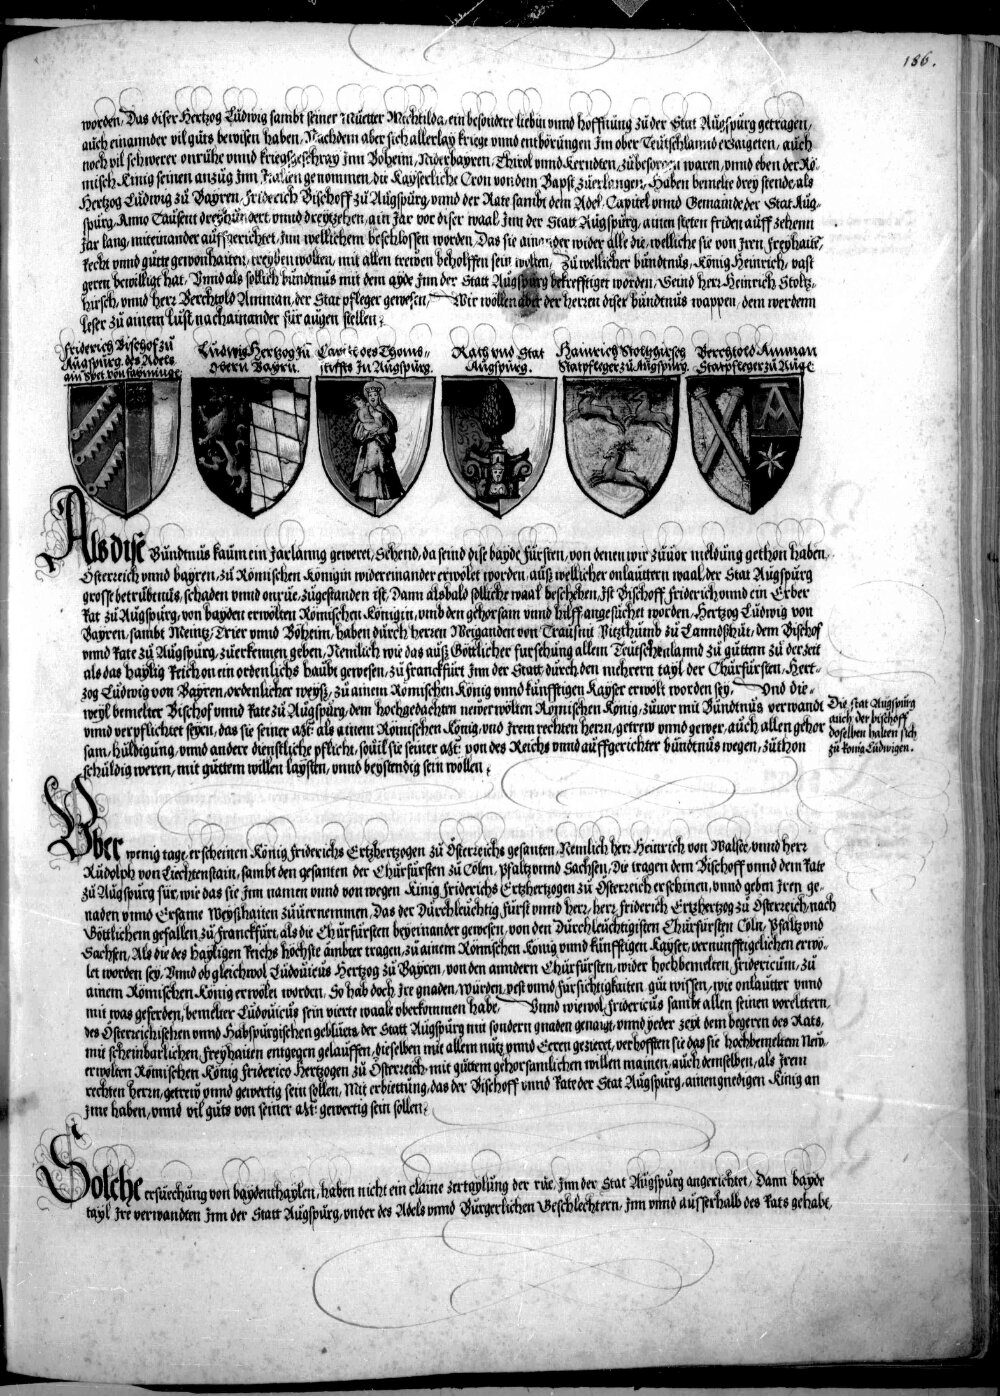 186.
worden, Das diser Hertzog Ludwig sambt seiner Muetter Mechtilda, ein besondere liebin unnd hoffnung zu der Stat Augspurg getragen,
auch einannder vil guts bewisen haben, Nachdem aber sich allerlay kriege unnd entbörungen Im ober Teutschlannd erzaigeten, auch
noch vil schwerer onrühe unnd kriegsgeschray Inn Böheim, Niderbayren, Thirol unnd Kerndten, zubesorgen waren, unnd eben der Rö-
misch König seinen anzug Inn Italien genommen, die Kayserliche Cron von dem Bapst zuerlangen, Haben bemelte drey stende als
Hertzog Ludwig zu Bayren, Friderich Bischoff zu Augspurg, unnd der Rate sambt dem Adel, Capitel unnd Gemainde der Stat Aug-
spurg, Anno Tausent dreyhundert, unnd dreytzehen, ain Jar vor diser waal Inn der Statt Augspurg, ainen steten friden auff zehenn
Jar lang, miteinander auffgerichtet, Inn wellichem beschlossen worden, Das sie ainander wider alle die, welliche sie von Iren freyhaite,
recht unnd gutte gewonhaiten, treyben wolten, mit allen trewen beholffen sein wolten, Zu wellicher bündtnus, König Heinrich, vast
geren bewilligt hat, Unnd als sollich bündtnus mit dem ayde Inn der Statt Augspurg bekrefftiget worden, Seind herr Heinrich Stoltz-
hirsch, unnd herr Berchtold Amman, der Stat pfleger gewesen, Wir wöllen aber der herren diser bündtnus wappen, dem werdenn
leser zu ainem lust nachainander für augen stellen,
Friderich Bischof zu
Augspurg, des Adels
ain Spet von faymingē
Ludwig Hertzog zu
Obern Bayrn.
Capitl des Thoms-
stiffts Zu Augspurg.
Rath und Stat
Augspurg.
Hainrich Stoltzhirsch
Statpfleger zu Augspurg.
Berchtold Amman
Statpfleger zu Augs
Als dise Bündtnus kaum ein Jar lanng geweret, Sehend, da seind dise bayde fürsten, von denen wir zuuor meldung gethon haben,
Österreich unnd bayren, zu Römischen Königin widereinander erwölet worden, auß wellicher onlauttern waal, der Stat Augspurg
grosse betrübtnus, schaden unnd onrue, zugestanden ist, Dann alsbald solliche waal beschehen, Ist Bischoff Friderich unnd ein Erber
Rat zu Augspurg, von bayden erwölten Römischen Königin, umb den gehorsam unnd hilff angesuchet worden, Hertzog Ludwig von
Bayren, sambt Meintz, Trier unnd Böheim, haben durch herren Weiganden von Trausnit Vitzthumb zu Lanndßhut, dem Bischof
unnd Rate zu Augspurg, zuerkennen geben, Nemlich wie das auß Göttlicher fursehung allem Teutschenlannd zu guttem zu der zeit
als das haylig Reich on ein ordenlichs haubt gewesen, zu Franckfurt Inn der Statt, durch den mehrern tayl der Churfürsten, Hert-
zog Ludwig von Bayren, ordenlicher weyß, zu ainem Römischen König unnd künfftigen Kayser erwölt worden sey, Und die-
weyl bemelter Bischof unnd Rate zu Augspurg, dem hochgedachten newerwölten Römischen König, zuuor mit Bündtnus verwandt
unnd verpflichtet seyen, das sie seiner Mt: als ainem Römischen König, und Irem rechten herrn, getrew unnd gewer, auch allen gehor
sam, huldigung, unnd andere dienstliche pflicht, souil sie seiner Mt: von des Reichs unnd auffgerichter bündtnus wegen, zuthon
schuldig weren, mit guttem willen laysten, unnd beystendig sein wollen,
Die Stat Augspurg
auch der bischoff
doselben halten sich
zu König Ludwigen.
Uber wenig tage, erscheinen König Friderichs Ertzhertzogen zu Österreichs gesanten, Nemlich herr Heinrich von Walsee, unnd herr
Rudolph von Liechtenstain, sambt den gesanten der Churfürsten zu Cölen, Pfaltz unnd Sachsen, Die tragen dem Bischoff unnd dem Rate
zu Augspurg für, wie das sie Inn namen unnd von wegen König Friderichs Ertzhertzogen zu Österreich erschinen, unnd geben Iren ge-
naden unnd Ersame Weyßhaiten zuuernemmen, Das der Durchleuchtig Fürst unnd herr, herr Friderich Ertzhertzog zu Österreich, nach
Göttlichem gefallen zu Franckfurt, als die Churfürsten beyeinander gewesen, von den Durchleuchtigisten Churfürsten Cöln, Pfaltz und
Sachsen, Als die des Hayligen Reichs höchste ämbter tragen, zu ainem Römischen König unnd künfftigen Kayser, vernunfftigelichen erwö-
let worden sey, Unnd ob gleichwol Ludouicus Hertzog zu Bayren, von den anndern Churfürsten, wider hochbemelten Fridericum, zu
ainem Römischen König erwölet worden, So hab doch Ire gnaden, wurden, vest unnd Fursichtigkaiten gut wissen, wie onlautter unnd
mit was geferden, bemelter Ludouicus sein vierte waale oberkommen habe, Unnd wiewol Fridericus sambt allen seinen vorelttern,
des Österreichischen unnd Habspurgischen gebluets, der Statt Augspurg mit sondern gnaden genaigt, unnd yeder zeyt dem begeren des Rats,
mit scheinbarlichen Freyhaiten entgegen gelauffen, dieselben mit allem nutz unnd Eeren gezieret, verhofften sie das sie hochbemeltem New-
erwölten Römischen König Friderico Hertzogen zu Österreich, mit guttem gehorsamlichen willen mainen, auch demselben, als Irem
rechten herrn, getrew unnd gewertig sein sollen, Mit erbiettung, das der Bischoff unnd Rate der Stat Augspurg, ainen gnedigen König an
Ime haben, unnd vil guts von seiner Mt: gewertig sein sollen,
Solche ersuechung von bayden thaylen, haben nicht ein claine zertaylung der rüe, Inn der Stat Augspurg angerichtet, Dann bayde
tayl Ire verwandten Inn der Statt Augspurg, under des Adels unnd Burgerlichen Geschlechtern, Inn unnd ausserhalb des Rats gehabt,